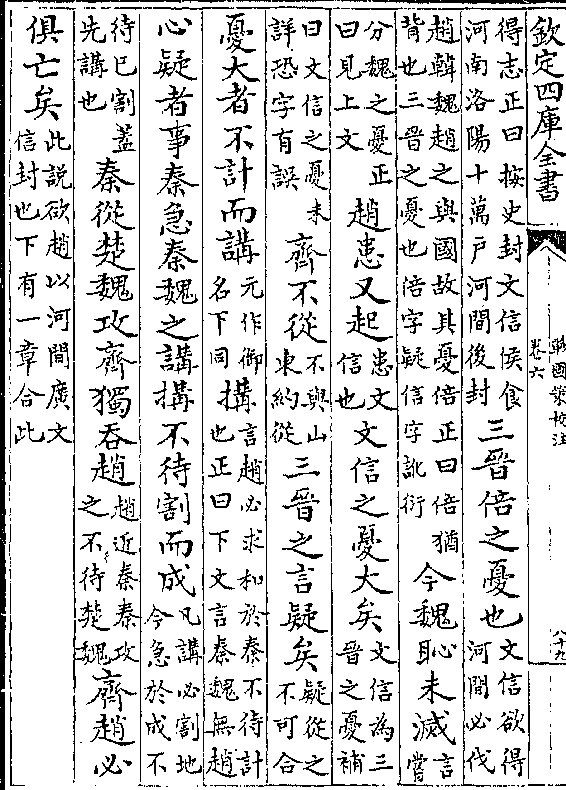 欽定四庫全書 戰國策校注 卷六 八十九
得志正曰按史封文信侯食河南洛陽十萬戶河間後封三晉倍之憂也文信欲得河間必伐
趙韓魏趙之與國故其憂倍正曰倍猶背也三晉之憂也倍字疑信字訛衍今魏恥未滅言嘗
分魏之憂正曰見上文趙患又起患文信也文信之憂大矣文信為三晉之憂補
曰文信之憂未詳恐字有誤齊不從不與山東約從三晉之言疑矣疑從之不可合
憂大者不計而講元作御名下同搆言趙必求和於秦不待計也正曰下文言秦魏無趙
心疑者事秦急秦魏之講搆不待割而成凡講必割地今急於成不
待已割蓋先講也秦從楚魏攻齊獨吞趙趙近秦秦攻之不待楚魏齊趙必
俱亡矣此說欲趙以河間廣文信封也下有一章合此